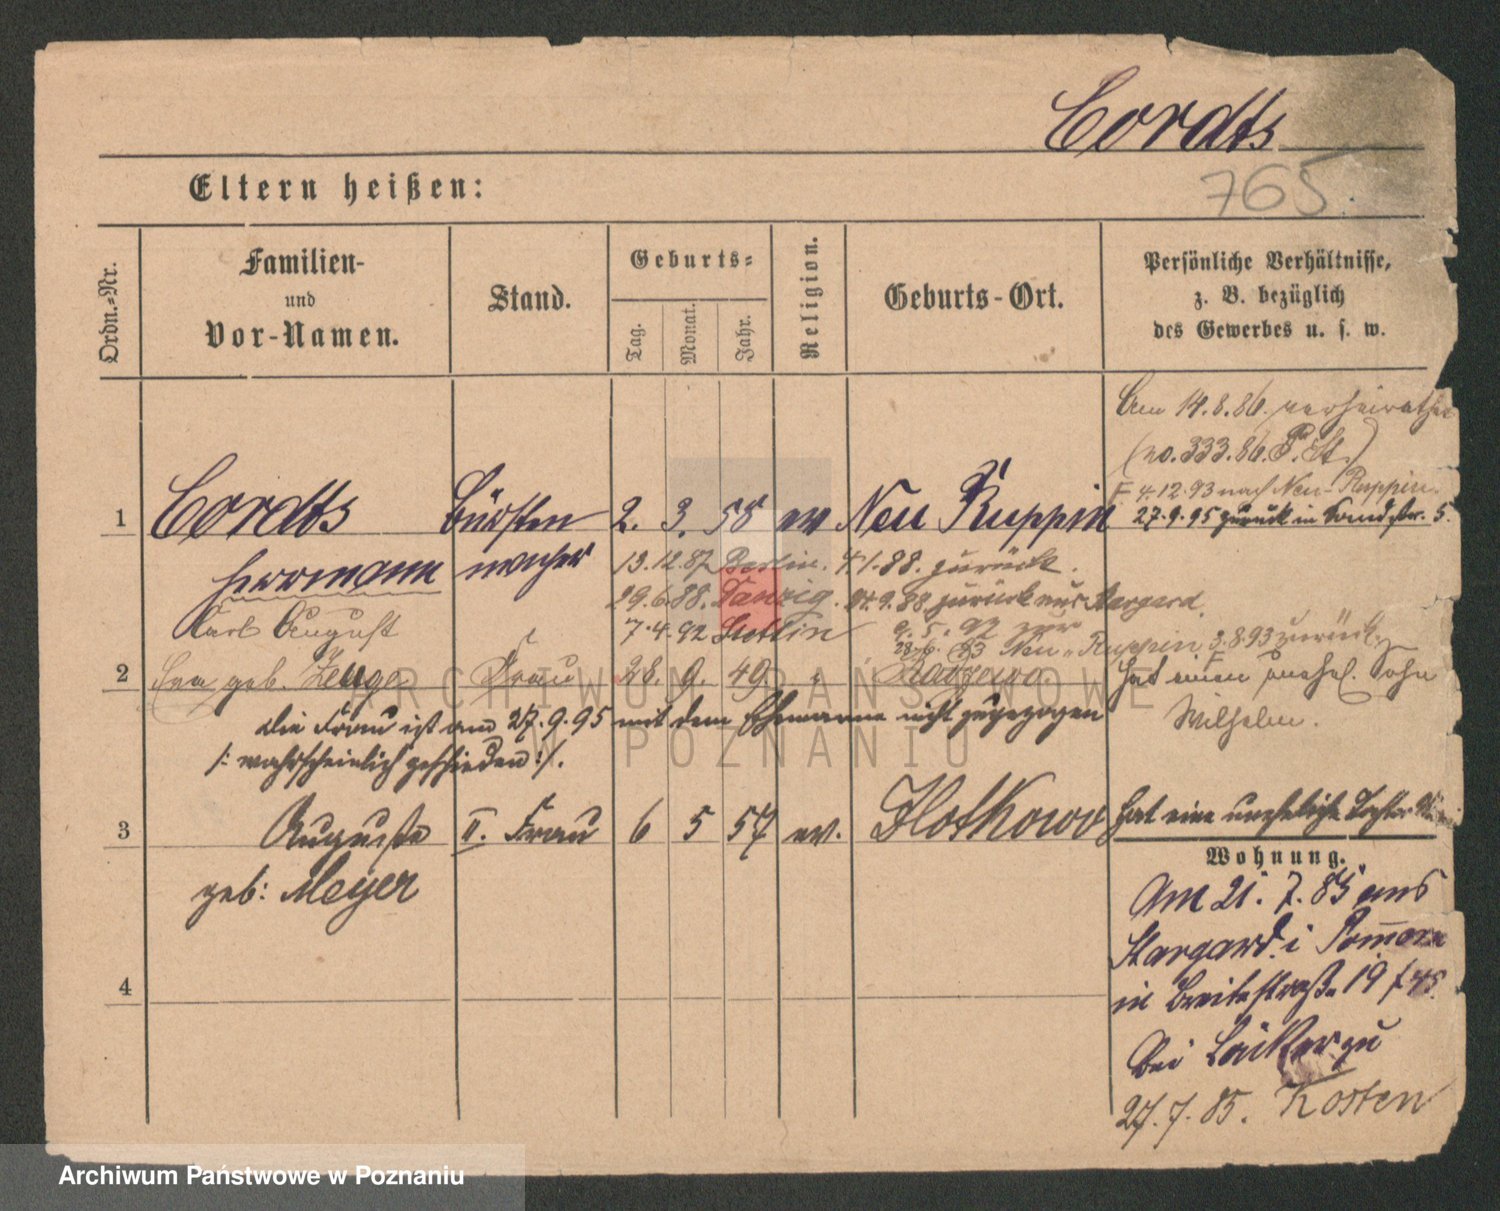 Cordts
765.
Eltern heißen:
Ordn.-Nr.
Familien-
und
Vor-Namen.
Stand.
Geburts-
Tag.
Monat.
Jahr.
Religion.
Geburts-Ort.
Persönliche Verhältnisse,
z. B. bezüglich
des Gewerbes u. s. w.
Am 14.8.86. verheirathet
(no. 333.86. P. St.)
4.12.93 nach Neu-Ruppin.
27.9.95 zurück in Sandstr. 5.
1 Cordts Bürsten 2. 3. 58 ev Neu Ruppin
Herrmann macher 13.12.87 Berlin. 4.1.88. zurück.
29.6.88. Danzig. 24.9.88 zurück aus Stargard.
Karl August 7.4.92 Stettin 9.5.92 zur
28.6.93 Neu-Ruppin 3.8.93 zurück.
2 Eva geb. Frau 28. 9. 49 " hat einen unehel. Sohn
Wilhelm.
Die Frau ist am 27.9.95 mit dem Ehemanne nicht zugezogen
/: wahrscheinlich geschieden :/.
3 Auguste II. Frau 6 5 57 ev. Hotkowo hat eine uneheliche Tochter
geb: Meyer
Wohnung.
Am 21.7.85 aus
Stargard i Pommern
in Breitestraße 19
bei
27.7.85. Kosten
4
ARCHIWUM PAŃSTWOWE
W POZNANIU
Archiwum Państwowe w Poznaniu